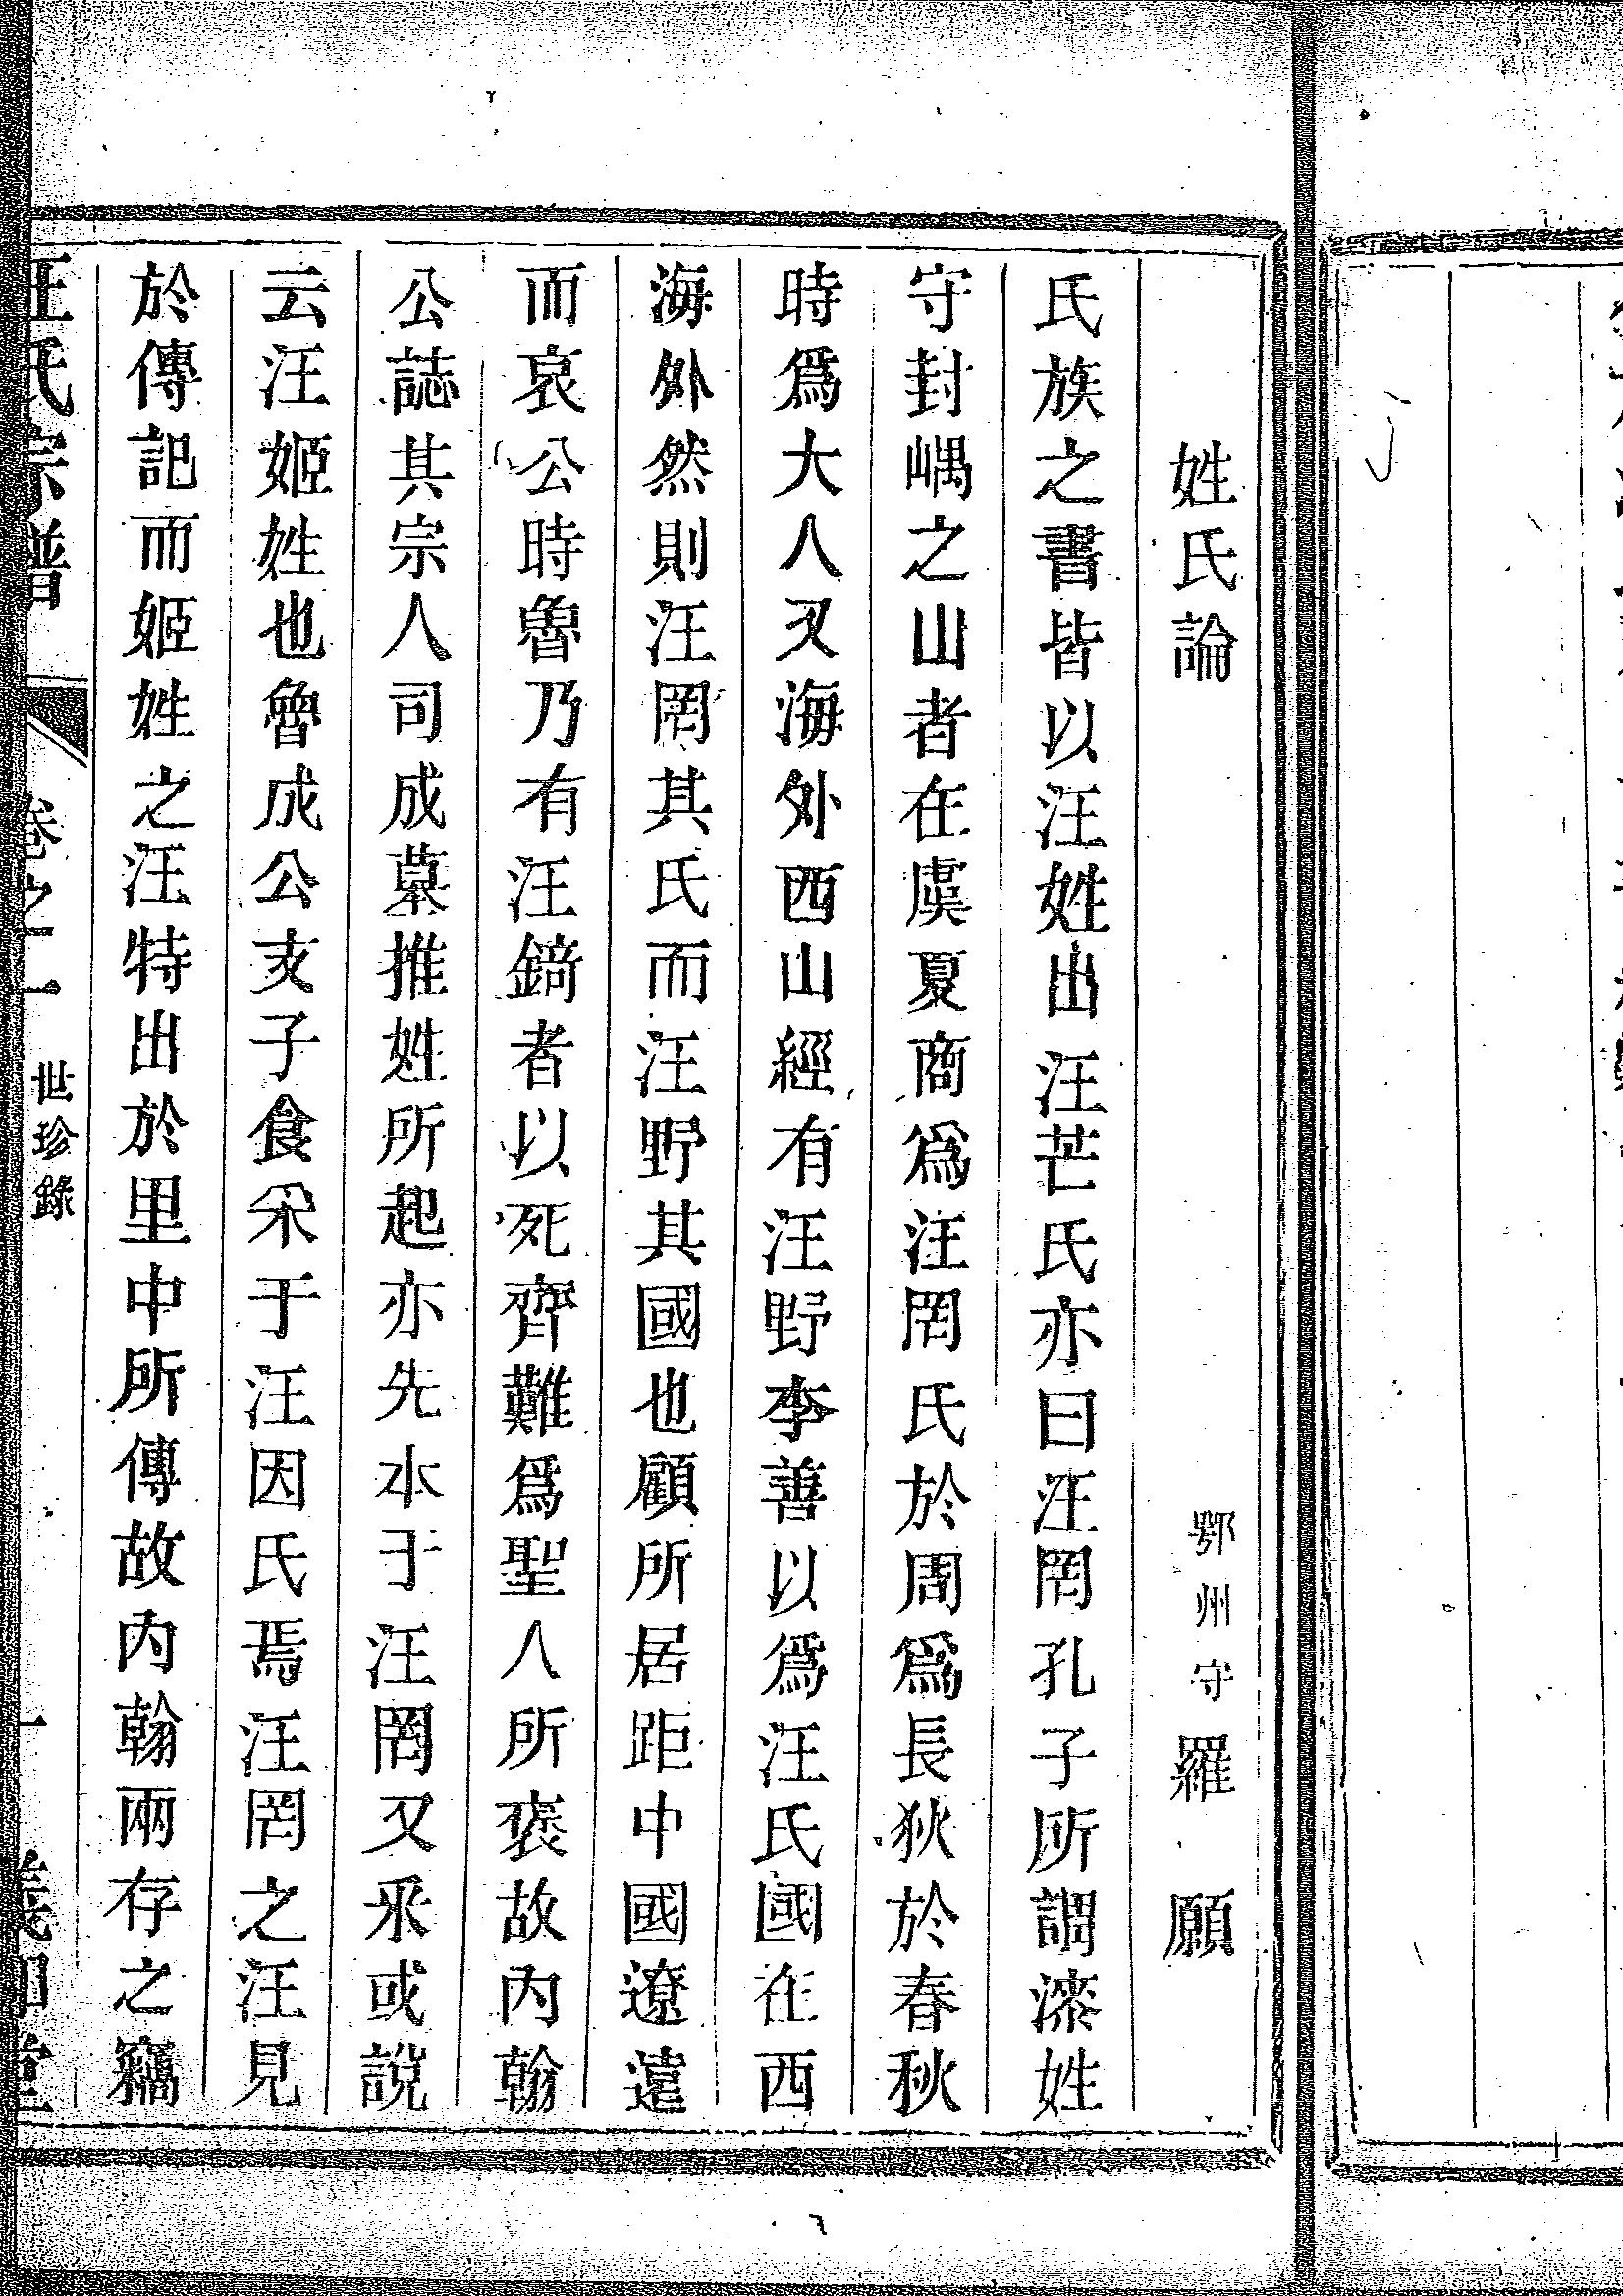 姓氏論 鄂州守羅願
氏族之書皆以汪姓出汪芒氏亦曰汪罔孔子所謂漆姓
守封嵎之山者在虞夏商爲汪罔氏於周爲長狄於春秋
時爲大人又海外西山經有汪野李善以爲汪氏國在西
海外然則汪罔其氏而汪野其國也顧所居距中國遼遠
而哀公時魯乃有汪錡者以死齊難爲聖人所褒故内翰
公誌其宗人司成墓推姓所起亦先本于汪罔又采或說
云汪姬姓也魯成公支子食采于汪因氏焉汪罔之汪見
於傳記而姬姓之汪特出於里中所傳故内翰兩存之竊
汪氏宗譜 卷之一 世珍錄